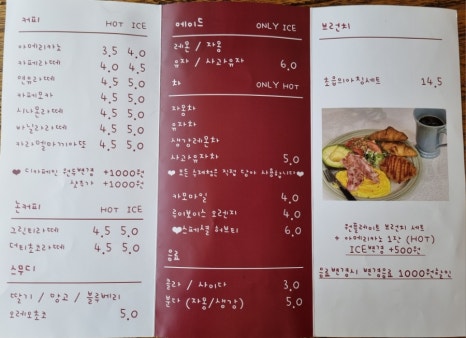 커피 HOT ICE
아메리카노 3.5 4.0
카페라떼 4.0 4.5
연유라떼 4.5 5.0
카페모카 4.5 5.0
시나몬라떼 4.5 5.0
바닐라라떼 4.5 5.0
카라멜마키아또 4.5 5.0
♥ 디카페인 원두변경 +1000원
샷추가 +1000원
논커피 HOT ICE
그린티라떼 4.5 5.0
더티초코라떼 4.5 5.0
스무디
딸기 / 망고 / 블루베리
오레오초코 5.0
에이드 ONLY ICE
레몬 / 자몽
유자 / 사과유자 6.0
차 ONLY HOT
자몽차
유자차
생강레몬차
사과유자차 5.0
♥ 모든 수제청은 직접 담가 사용합니다 ♥
카모마일 4.0
루이보이스 오렌지 4.0
♥스페셜 허브티 6.0
음료
콜라 / 사이다 3.0
분다 (자몽/생강) 5.0
브런치
14.5
원플레이트 브런치 세트
+ 아메리카노 1잔 (HOT)
ICE변경 +500원
음료변경시 변경음료 1000원할인